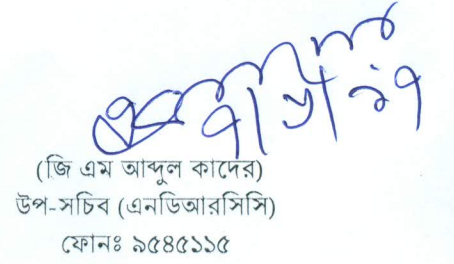 (জি এম আব্দুল কাদের)
উপ-সচিব (এনডিআরসিসি)
ফোনঃ ৯৫৪৫১১৫